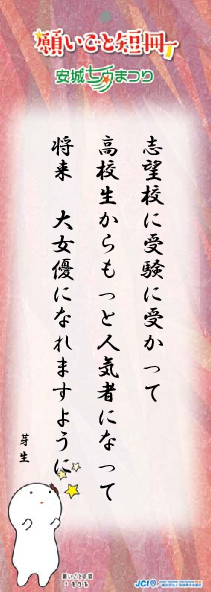 願いごと短冊
安城七夕まつり
志望校に受験に受かって
高校生からもっと人気者になって
将来　大女優になれますように
芽生
JCI